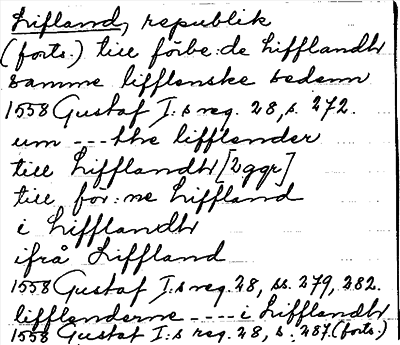 Lifland, republik
(forts.) till förbe:de Lifflandh
samme lifflenske sedann
1558 Gustaf I:s reg. 28, s. 272.
um --- the lifflender
till Lifflandh [2ggr]
till for:ne Liffland
i Lifflandh
ifrå Liffland
1558 Gustaf I:s reg. 28, ss. 279, 282.
lifflenderne ---- i Lifflandh
1558 Gustaf I:s reg. 28, s. 287. (forts.)